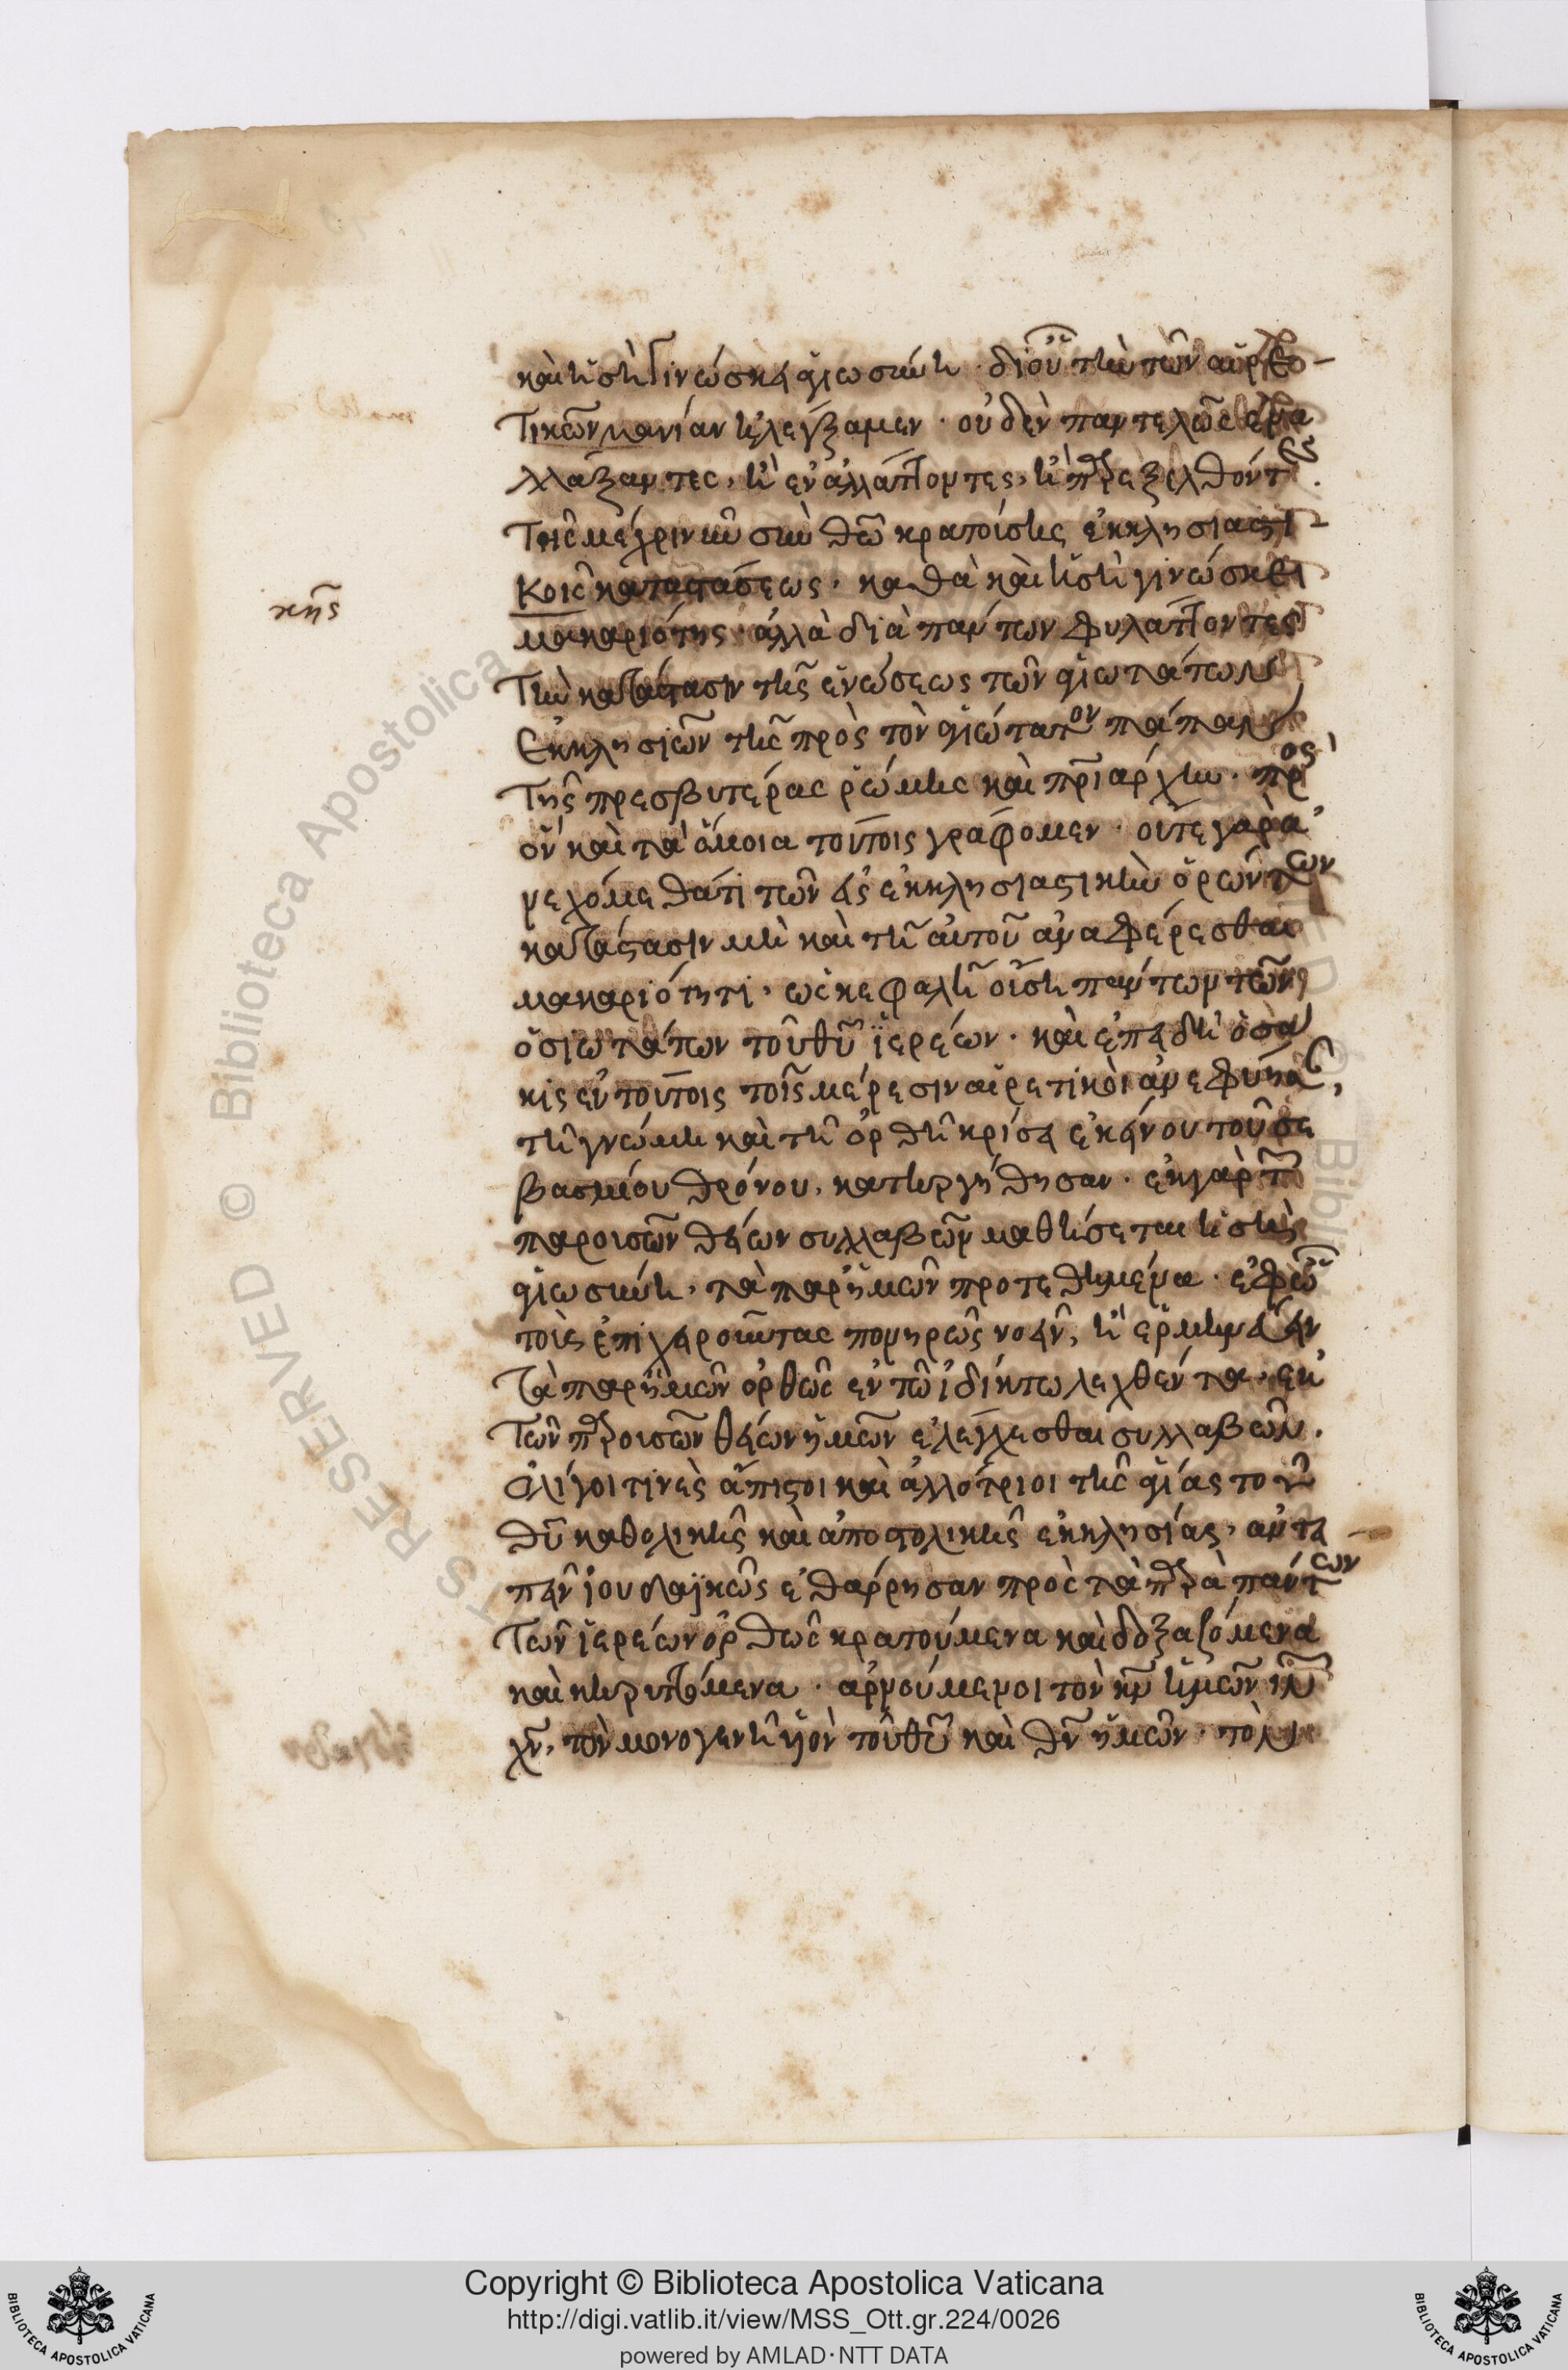 καὶ ἡ σὴ γινώσκει ἁγιωσύνη · δι' οὗ τὴν τῶν αἱρε-
τικῶν μανίαν ἠλέγξαμεν · οὐδὲν παντελῶς ἐνα
λλάξαντες, ἢ ἐναλλάττοντες, ἢ παρεξελθόντες
τῆς μέχρι νῦν σὺν θεῷ κρατούσης ἐκκλησιαστι
κῆς καταστάσεως · καθὰ καὶ ἡ σὴ γινώσκει
κῆς
μακαριότης · ἀλλὰ διὰ πάντων φυλάττοντες
τὴν κατάστασιν τῆς ἑνώσεως τῶν ἁγιωτάτων
ἐκκλησιῶν τῆς πρὸς τὸν ἁγιώτατον πάπαν
τῆς πρεσβυτέρας ῥώμης καὶ πριάρχην · πρὸς
ὃν καὶ τὰ ὅμοια τούτοις γράφομεν · οὔτε γὰρ ἀ
νεχόμεθά τι τῶν εἰς ἐκκλησιαστικὴν ὁρώντων
κατάστασιν μὴ καὶ τῇ αὐτοῦ ἀναφέρεσθαι
μακαριότητι · ὡς κεφαλῇ οὔσῃ πάντων τῶν
ὁσιωτάτων τοῦ θυ ἱερέων · καὶ ἐπειδὴ ὁσά
κις ἐν τούτοις τοῖς μέρεσιν αἱρετικοὶ ἀνεφύησαν,
τῇ γνώμῃ καὶ τῇ ὀρθῇ κρίσει ἐκείνου τοῦ σε
βασμίου θρόνου, κατηργήθησαν · ἐκ γὰρ τῶν
παρουσῶν θείων συλλαβῶν μαθήσεται ἡ σὴ
ἁγιωσύνη, τὰ παρ' ἡμῶν προτεθημένα · ἐφ' ᾧ
τοὺς ἐπιχειροῦντας πονηρῶς νοεῖν, ἢ ἑρμηνεύειν
τὰ παρ' ἡμῶν ὀρθῶς ἐν τῷ ἰδίκτῳ λεχθέντα · ἐκ
τῶν παρουσῶν θείων ἡμῶν ἐλέγχεσθαι συλλαβῶν ·
ὀλίγοι τινὲς ἄπιστοι καὶ ἀλλότριοι τῆς ἁγίας τοῦ
θυ καθολικῆς καὶ ἀποστολικῆς ἐκκλησίας, ἀντει
πεῖν ἰουδαϊκῶς ἐθάρρησαν πρὸς τὰ παρὰ πάντων
τῶν ἱερέων ὀρθῶς κρατούμενα καὶ δοξαζόμενα
καὶ κηρυττόμενα · ἀρνούμενοι τὸν κν ἡμῶν ιν
χν, τὸν μονογενῆ υἱὸν τοῦ θυ καὶ θν ἡμῶν ·
Copyright © Biblioteca Apostolica Vaticana
http://digi.vatlib.it/view/MSS_Ott.gr.224/0026
powered by AMLAD·NTT DATA
BIBLIOTECA APOSTOLICA VATICANA
BIBLIOTECA APOSTOLICA VATICANA